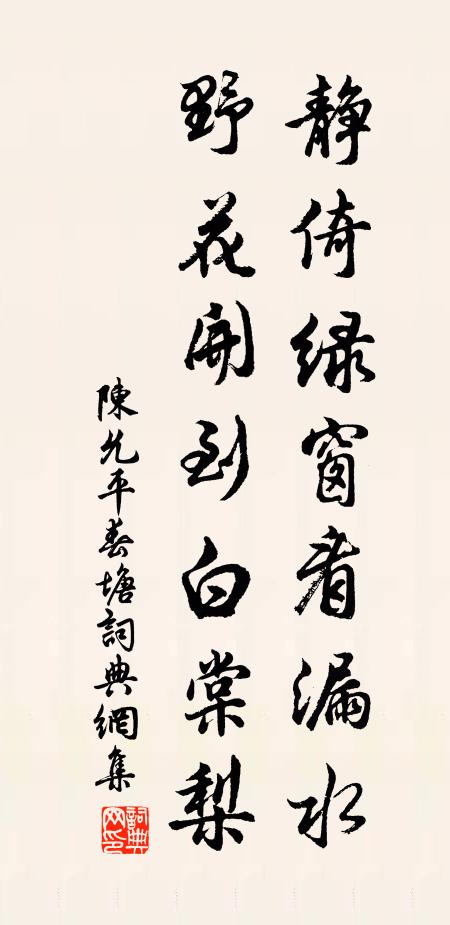 静倚绿窗看漏水
野花開到白棠梨
陳允平春塘詞典網集
詞典网印